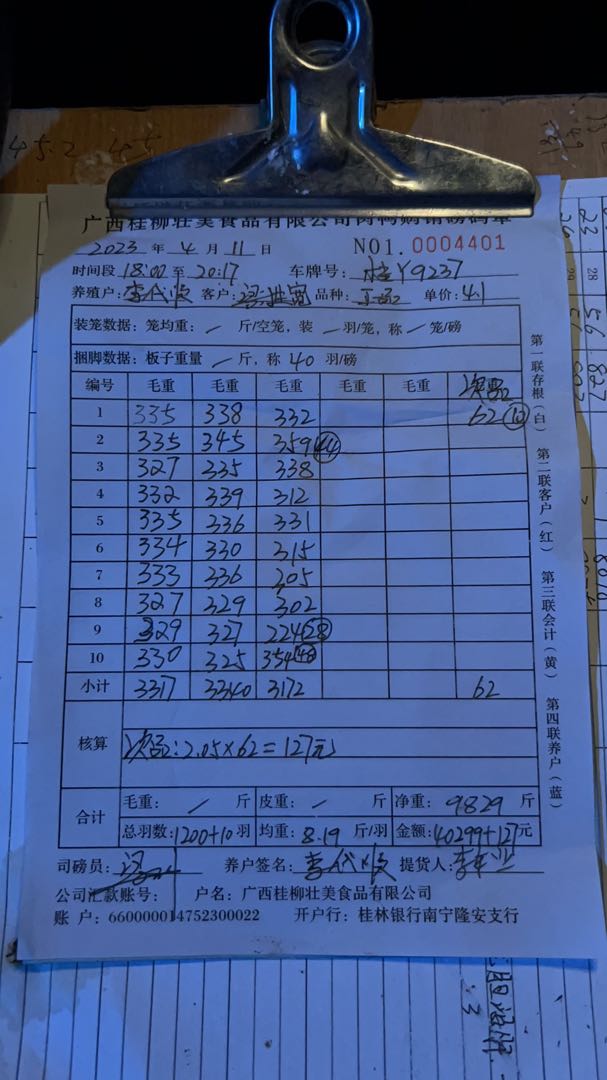 广西桂柳壮美食品有限公司肉鸭购销磅码单
2023 年 4 月 11 日 NO1. 0004401
时间段 18:00 至 20:17 车牌号: 桂Y9237
养殖户: 李代 客户: 品种: 单价: 4.1
装笼数据: 笼均重: / 斤/空笼, 装 / 羽/笼, 称 / 笼/磅
捆脚数据: 板子重量 / 斤, 称 40 羽/磅
编号 毛重 毛重 毛重 毛重 毛重 次品
1 335 338 332 62 (10)
2 335 345 359 (44)
3 327 335 338
4 332 339 312
5 335 336 331
6 334 330 315
7 333 336 205
8 327 329 302
9 329 327 224 (28)
10 330 325 354 (48)
小计 3317 3340 3172 62
核算 次品: 2.05×62=127元
合计 毛重: / 斤 皮重: / 斤 净重: 9829 斤
总羽数: 1200+10 羽 均重: 8.19 斤/羽 金额: 40299+127 元
司磅员: 养户签名: 李代 提货人: 李
公司汇款账号: 户名: 广西桂柳壮美食品有限公司
账 户: 660000014752300022 开户行: 桂林银行南宁隆安支行
第一联存根(白)
第二联客户(红)
第三联会计(黄)
第四联养户(蓝)
45.2 45